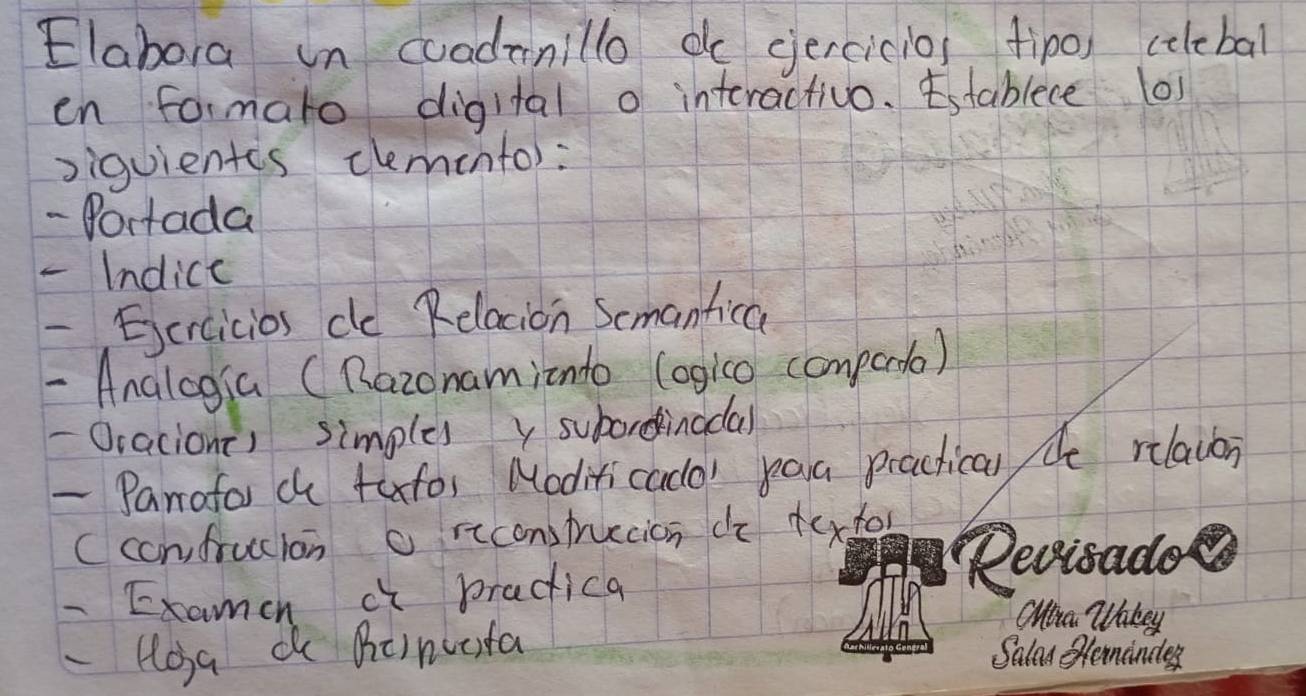 Elabora un cuadernillo de ejercicios tipos celebal
en formato digital o interactivo. Establece los
siguientes elementos:
- Portada
- Indice
- Ejercicios de Relación Semantica
- Analogía (Razonamiento logico comparado)
- Oraciones simples y subordinadas
- Parrafos de textos Modificados para practicas de relación
(construcción o reconstrucción de textos
- Examen de practica
- Hoja de Respuesta
Revisado
Mtra. Wakey
Salas Hernández
Bachillerato General